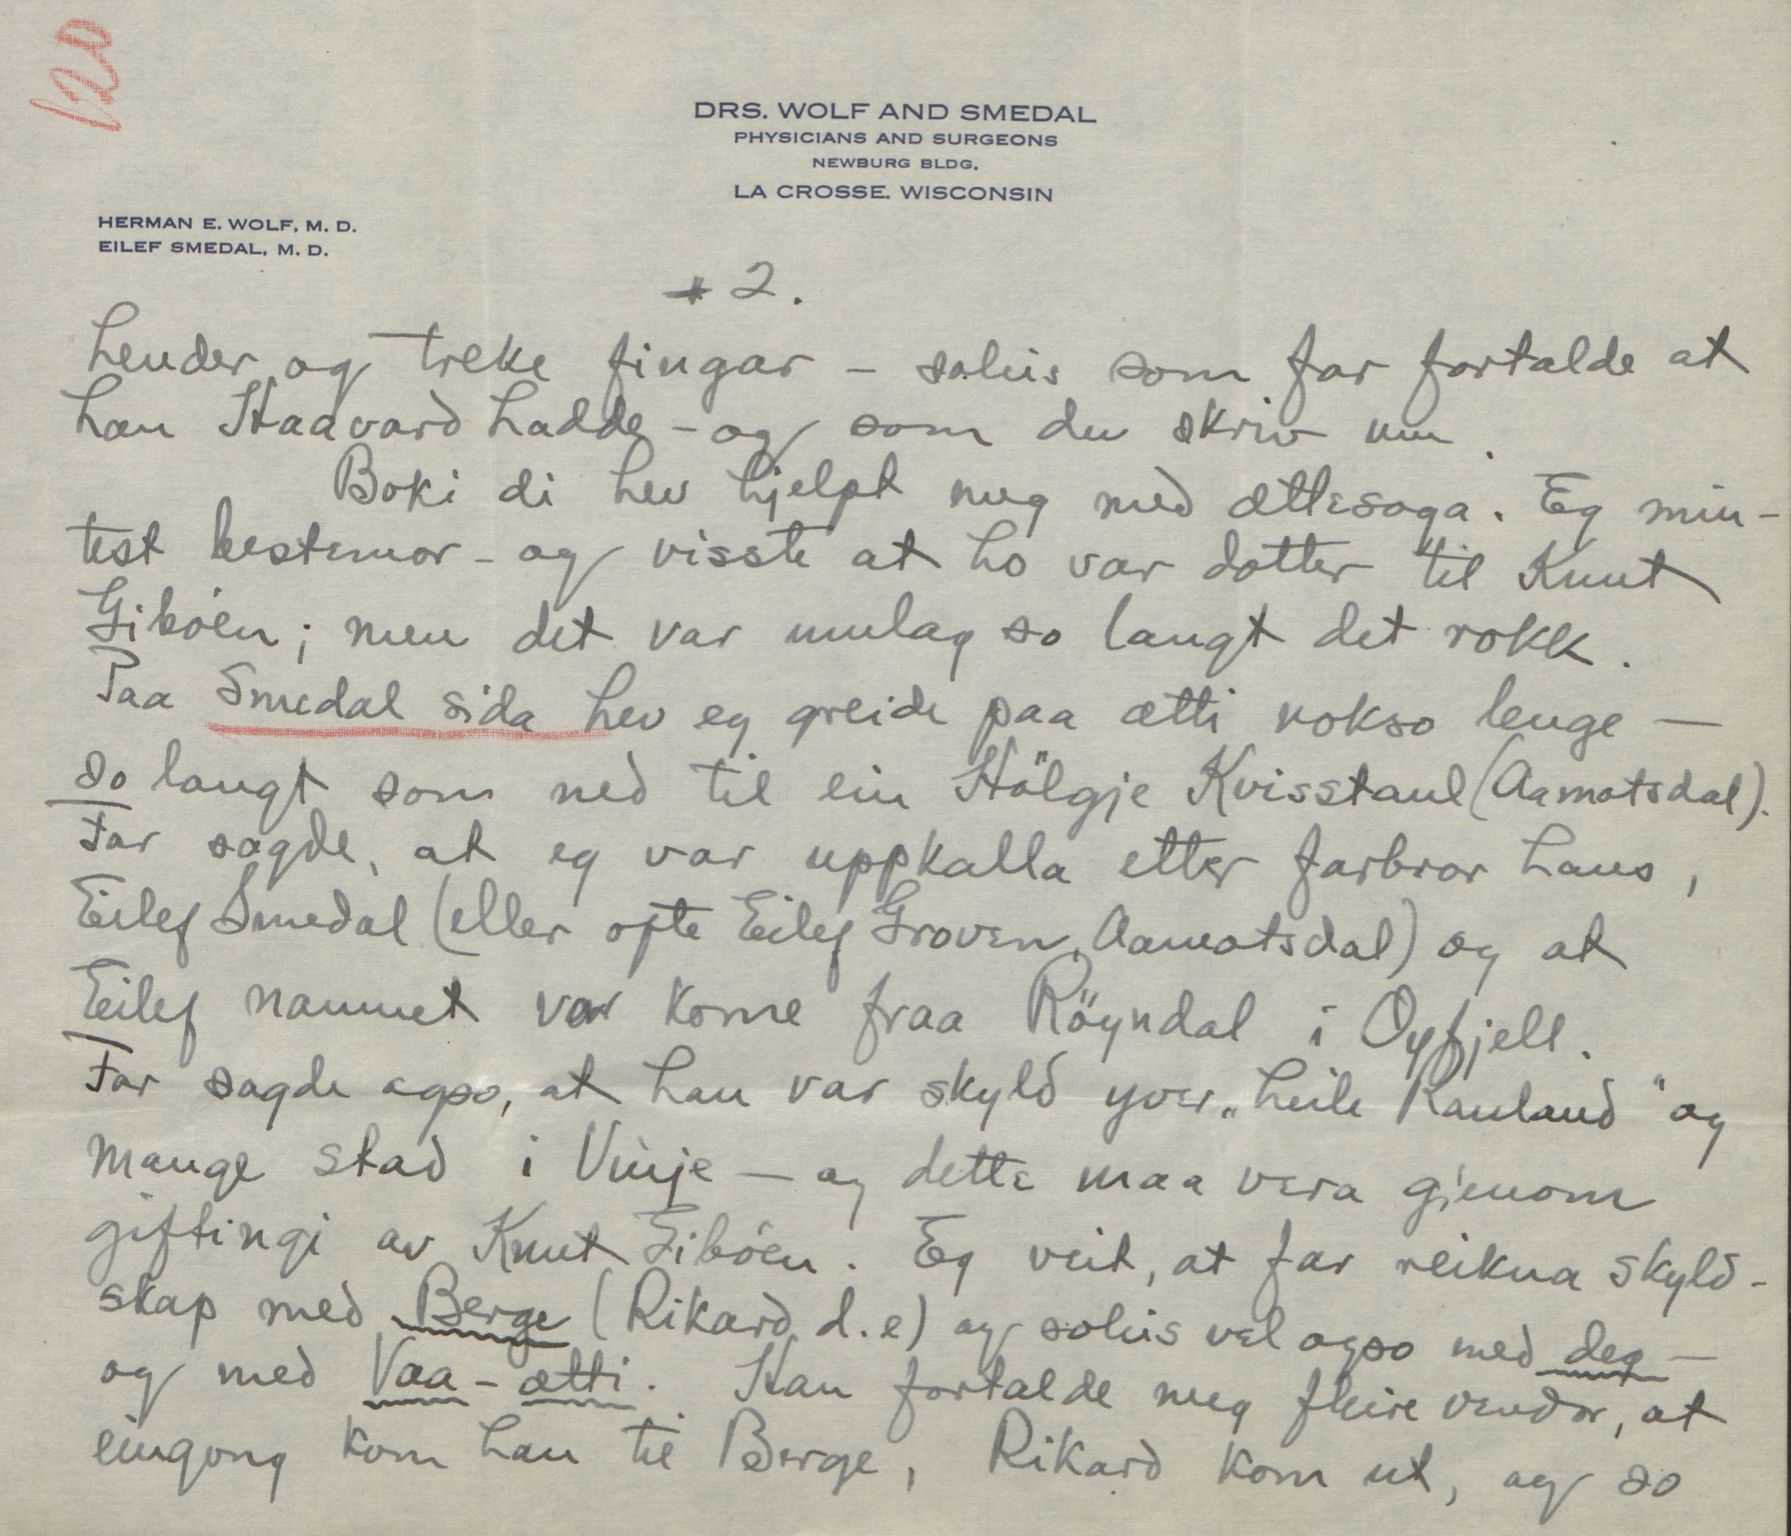 120
DRS. WOLF AND SMEDAL
PHYSICIANS AND SURGEONS
NEWBURG BLDG.
LA CROSSE. WISCONSIN
HERMAN E. WOLF, M. D.
EILEF SMEDAL, M. D.
2.
hender og treke fingar – soleis som far fortalde at
han Haavard hadde – og som du skriv um.
Boki di hev hjelpt meg med ættesoga. Eg min-
test bestemor – og visste at ho var dotter til Knut
Gibøen; men det var umlag so langt det rokk.
Paa Smedal sida hev eg greide paa ætti nokso lenge –
so langt som ned til ein Hölgje Kvisstaul (Aamotsdal).
Far sagde, at eg var uppkalla etter farbror hans,
Eilef Smedal (eller ofte Eilef Groven, Aamotsdal) og at
Eilef nammet var kome fraa Röyndal i Øyfjell.
Far sagde ogso, at han var skyld yver „heile Rauland" og
mange stad i Vinje – og dette maa vera gjenom
giftingi av Knut Gibøen. Eg veit, at far reikna skyld-
skap med Berge (Rikard d.e) og soleis vel ogso med deg –
og med Vaa-ætti. Han fortalde meg fleire vendor, at
eingong kom han til Berge, Rikard kom ut, og so